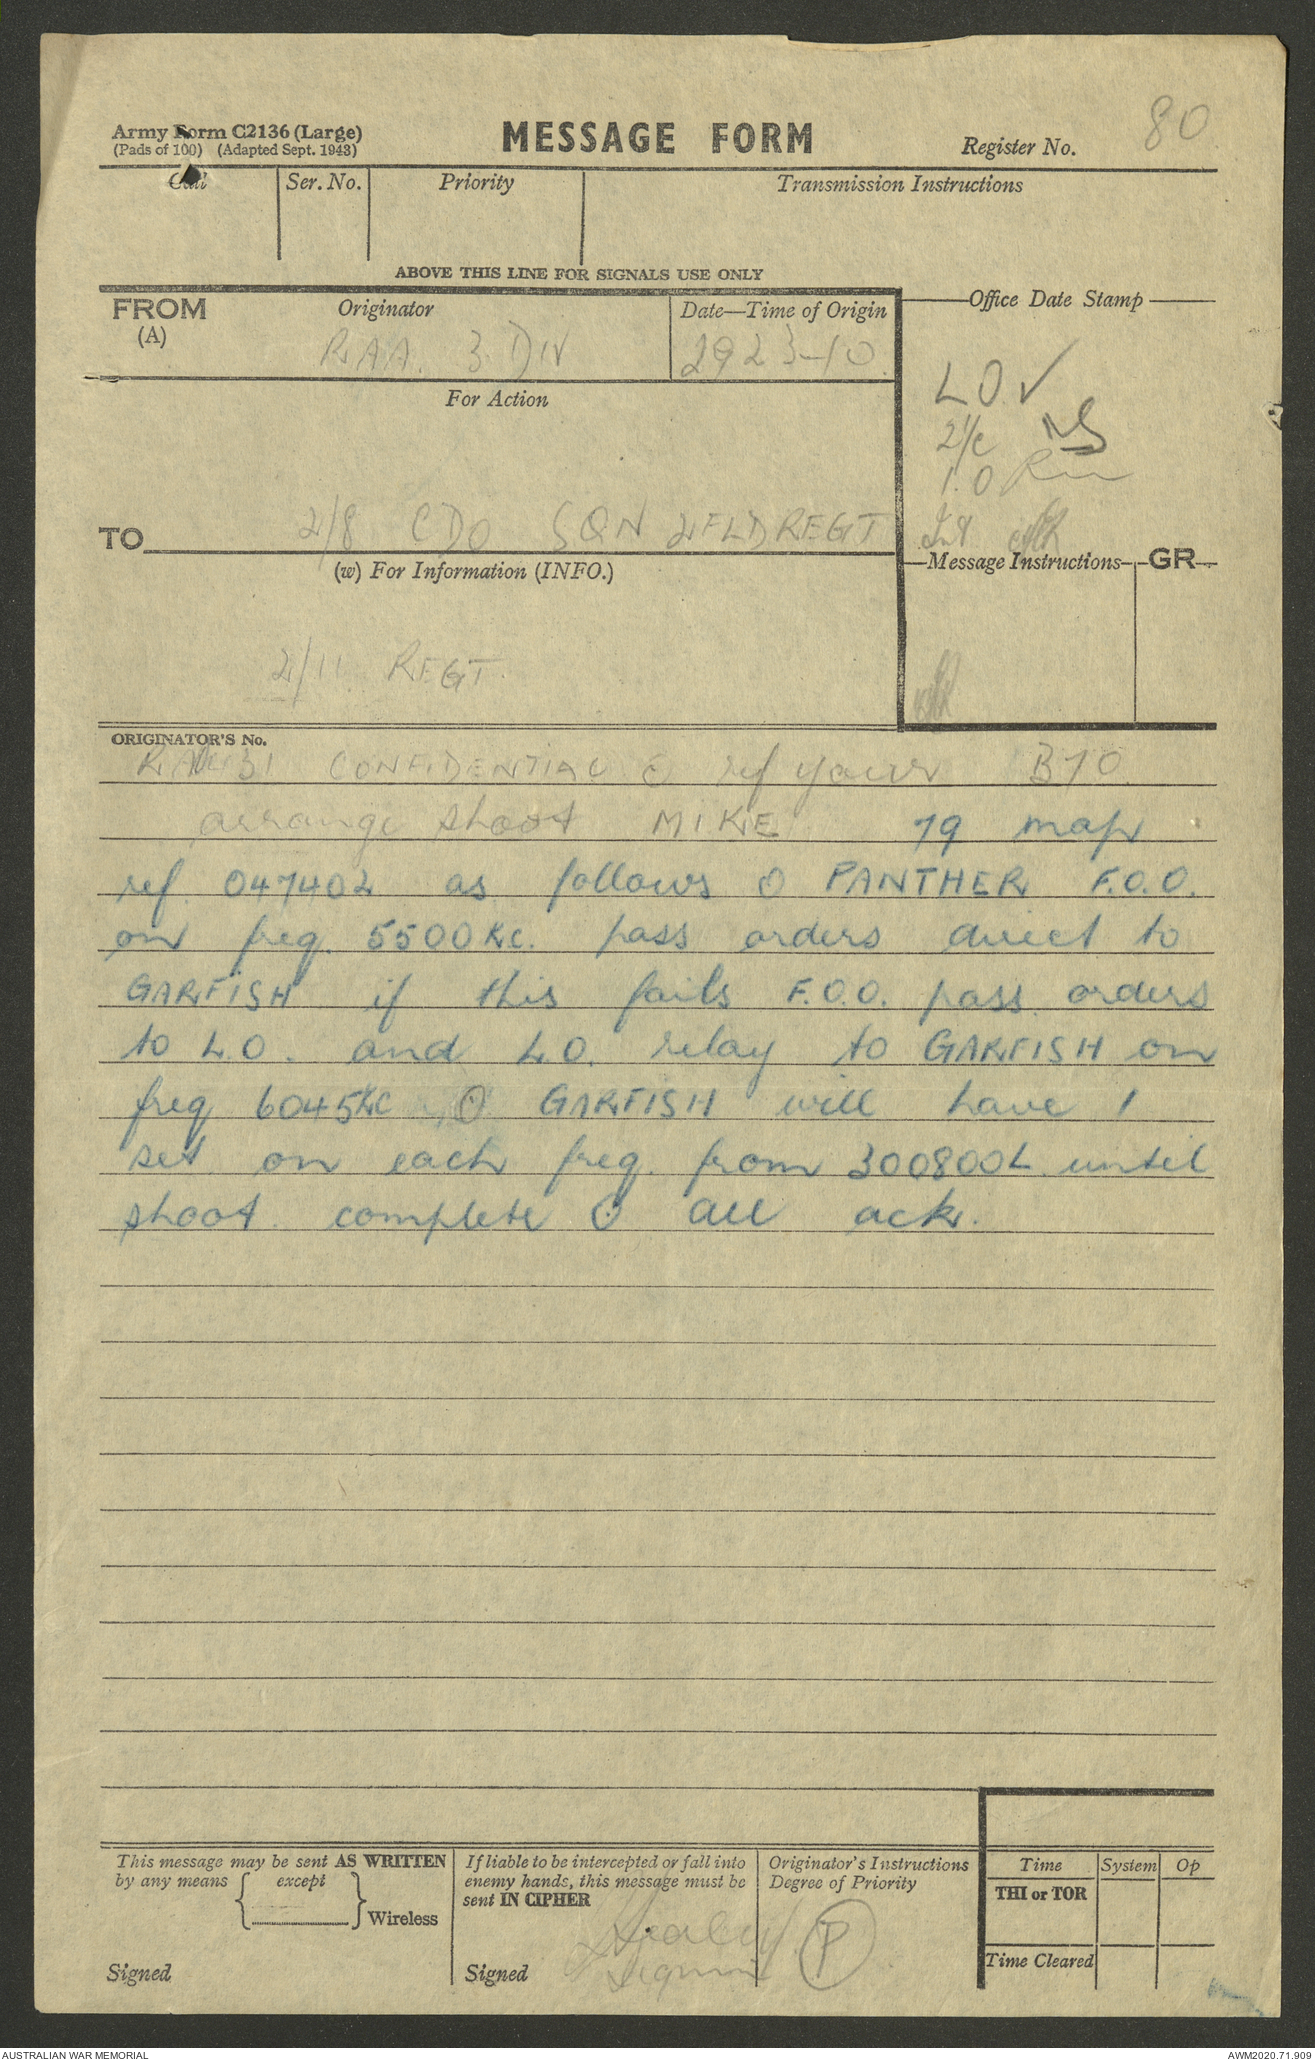 Army Form C2136 (Large)
(Pads of 100) (Adapted Sept. 1943)
MESSAGE FORM
Register No. 80
Call
Ser. No.
Priority
Transmission Instructions
ABOVE THIS LINE FOR SIGNALS USE ONLY
FROM
(A)
Originator
RAA. 3 DIV
Date—Time of Origin
2923-10
Office Date Stamp
LO ✓
2/c
I.O
Int
For Action
TO 2/8 CDO SQN 2 FLD REGT
(w) For Information (INFO.)
2/11 REGT.
Message Instructions
GR
ORIGINATOR'S No.
31 CONFIDENTIAL ref your B70
arrange shoot MIKE 79 map
ref 047402 as follows O PANTHER F.O.O.
on freq. 5500 KC. pass orders direct to
GARFISH if this fails F.O.O. pass orders
to L.O. and L.O. relay to GARFISH on
freq 6045KC O GARFISH will have 1
set on each freq. from 300800L until
shoot complete O all ack.
This message may be sent AS WRITTEN
by any means
except
Wireless
Signed
If liable to be intercepted or fall into
enemy hands, this message must be
sent IN CIPHER
Signed
Originator's Instructions
Degree of Priority
P
Time
System
Op
THI or TOR
Time Cleared
AUSTRALIAN WAR MEMORIAL
AWM2020.71.909